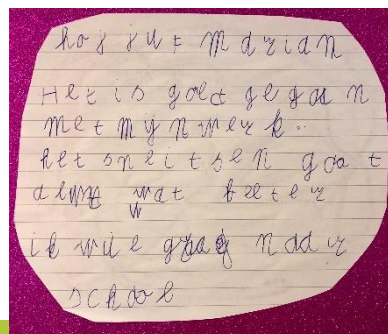 hoj juf Marian
Het is goed gegaan
met mijn werk..
het sneitsen gaat
wat beeter
ik wile graag naar
school